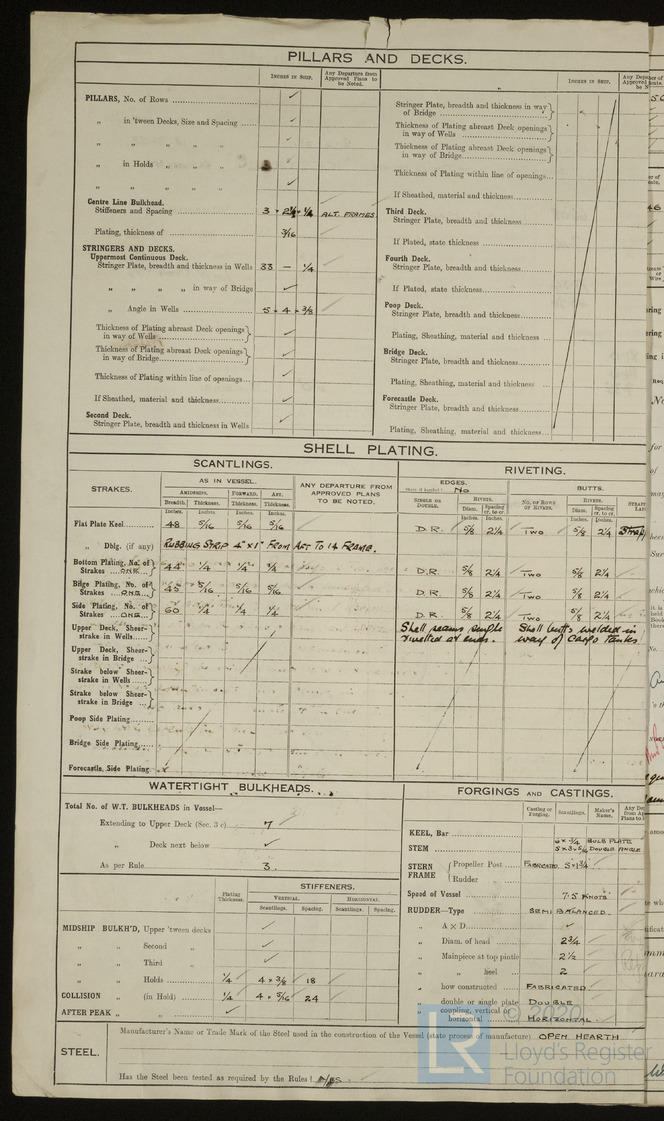 PILLARS AND DECKS.
INCHES IN SHIP.
Any Departure from Approved Plans to be Noted.
PILLARS, No. of Rows
„ in 'tween Decks, Size and Spacing
„ „ „ „
„ in Holds „ „
„ „ „ „
Centre Line Bulkhead.
Stiffeners and Spacing 3 × 2½ × ¼ ALT. FRAMES
Plating, thickness of 3/16
STRINGERS AND DECKS.
Uppermost Continuous Deck.
Stringer Plate, breadth and thickness in Wells 33 — ¼
„ „ „ „ in way of Bridge
„ Angle in Wells 5 × 4 × 3/8
Thickness of Plating abreast Deck openings in way of Wells
Thickness of Plating abreast Deck openings in way of Bridge
Thickness of Plating within line of openings
If Sheathed, material and thickness
Second Deck.
Stringer Plate, breadth and thickness in Wells
INCHES IN SHIP.
Stringer Plate, breadth and thickness in way of Bridge
Thickness of Plating abreast Deck openings in way of Wells
Thickness of Plating abreast Deck openings in way of Bridge
Thickness of Plating within line of openings
If Sheathed, material and thickness
Third Deck.
Stringer Plate, breadth and thickness
If Plated, state thickness
Fourth Deck.
Stringer Plate, breadth and thickness
If Plated, state thickness
Poop Deck.
Stringer Plate, breadth and thickness
Plating, Sheathing, material and thickness
Bridge Deck.
Stringer Plate, breadth and thickness
Plating, Sheathing, material and thickness
Forecastle Deck.
Stringer Plate, breadth and thickness
Plating, Sheathing, material and thickness
SHELL PLATING.
SCANTLINGS.
RIVETING.
STRAKES.
AS IN VESSEL.
AMIDSHIPS. FORWARD. AFT.
Breadth. Thickness. Thickness. Thickness.
Inches. Inches. Inches. Inches.
ANY DEPARTURE FROM APPROVED PLANS TO BE NOTED.
EDGES.
No
SINGLE OR DOUBLE.
RIVETS.
Diam. Spacing cr. to cr.
Inches. Inches.
BUTTS.
NO. OF ROWS OF RIVETS.
RIVETS.
Diam. Spacing cr. to cr.
Inches. Inches.
Flat Plate Keel 48 5/16 5/16 5/16 D.R. 5/8 2¼ Two 5/8 2¼ Strap
„ Dblg. (if any) RUBBING STRIP 4" × 1" FROM AFT TO 14 FRAME.
Bottom Plating, No. of Strakes ONE 44 ¼ ¼ ¼ D.R. 5/8 2¼ Two 5/8 2¼
Bilge Plating, No. of Strakes ONE 45 5/16 5/16 5/16 D.R. 5/8 2¼ Two 5/8 2¼
Side Plating, No. of Strakes ONE 60 ¼ ¼ ¼ D.R. 5/8 2¼ Two 5/8 2¼
Upper Deck, Sheerstrake in Wells
Shell seams single riveted at ends.
Shell butts welded in way of Cargo Tanks
Upper Deck, Sheerstrake in Bridge
Strake below Sheerstrake in Wells
Strake below Sheerstrake in Bridge
Poop Side Plating
Bridge Side Plating
Forecastle, Side Plating
WATERTIGHT BULKHEADS.
Total No. of W.T. BULKHEADS in Vessel—
Extending to Upper Deck (Sec. 3 c) 7
„ Deck next below
As per Rule 3.
Plating Thickness.
STIFFENERS.
VERTICAL. HORIZONTAL.
Scantlings. Spacing. Scantlings. Spacing.
MIDSHIP BULKH'D, Upper 'tween decks
„ „ Second „
„ „ Third „
„ „ Holds ¼ 4 × 3/8 18
COLLISION „ (in Hold) ¼ 4 × 5/16 24
AFTER PEAK „ „
FORGINGS AND CASTINGS.
Casting or Forging. Scantlings. Maker's Name.
KEEL, Bar
STEM 6 × ¾ BULB PLATE
5 × 3 × 5/16 DOUBLE ANGLE
STERN FRAME
Propeller Post FABRICATED 5 × 1¾
Rudder „
Speed of Vessel 7.5 KNOTS
RUDDER—Type SEMI BALANCED.
„ A × D
„ Diam. of head 2¾
„ Mainpiece at top pintle 2½
„ „ heel 2
„ how constructed FABRICATED.
„ double or single plate DOUBLE
„ coupling, vertical or horizontal HORIZONTAL.
STEEL.
Manufacturer's Name or Trade Mark of the Steel used in the construction of the Vessel (state process of manufacture) OPEN HEARTH
Has the Steel been tested as required by the Rules? YES
LR
© 2020
Lloyd's Register
Foundation